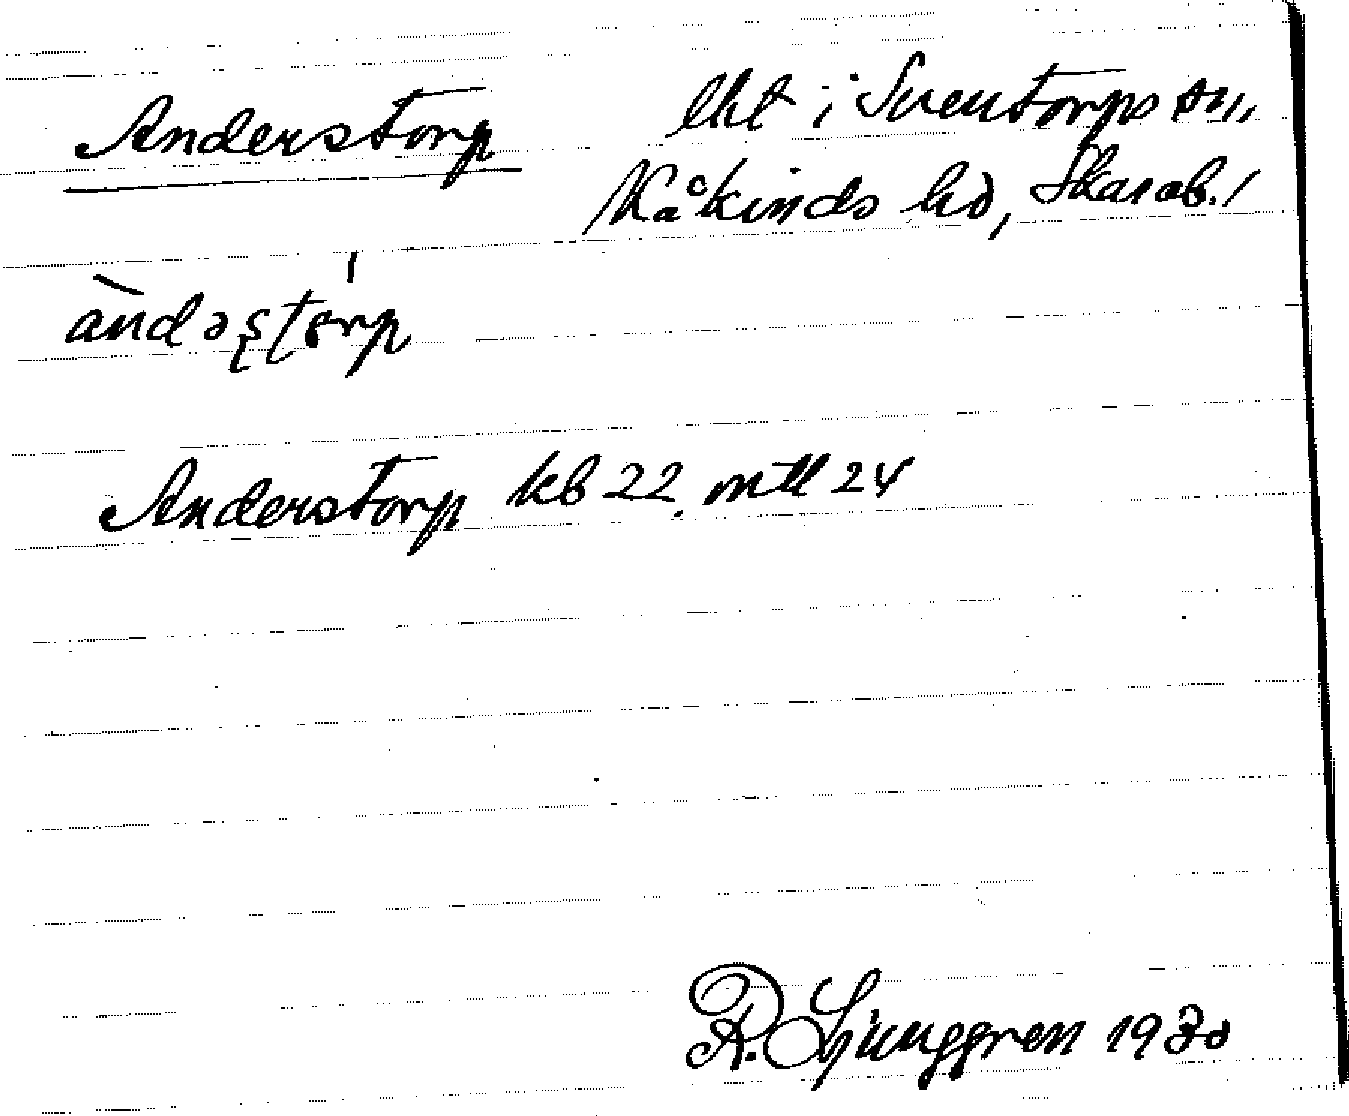 Anderstorp lht i Suentorps sn,
Kåkinds hd, Skarab. /
àndəʂʈɵ́rp
Anderstorp kb 22. mtl 24
R. Ljunggren 1930